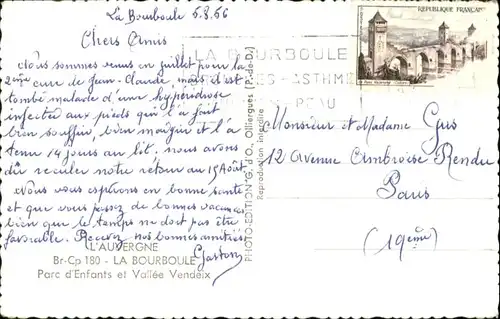 La Bourboule 5.8.56
Chers Amis
Nous sommes venus en juillet pour la
2ème cure de Jean-Claude, mais il est
tombé malade d'une hyperidrose
infectée aux pieds qui l'a fait
bien souffrir, bien maigrir et l'a
tenu 14 jours au lit. nous avons
dû reculer notre retour au 15 Août.
Nous vous espérons en bonne santé
et que vous passez de bonnes vacances
bien que le temps ne doit pas être
favorable. Recevez nos bonnes amitiés
Gaston
L'AUVERGNE
Br-Cp 180 - LA BOURBOULE
Parc d'Enfants et Vallée Vendeix
PHOTO-EDITION "G. d'O., Olliergues (P.-de-D.)
Reproduction interdite
REPUBLIQUE FRANÇAISE
LA BOURBOULE
ASTHME
PEAU
Monsieur et Madame Gus
12 Avenue Ambroise Rendu
Paris
(19ème)